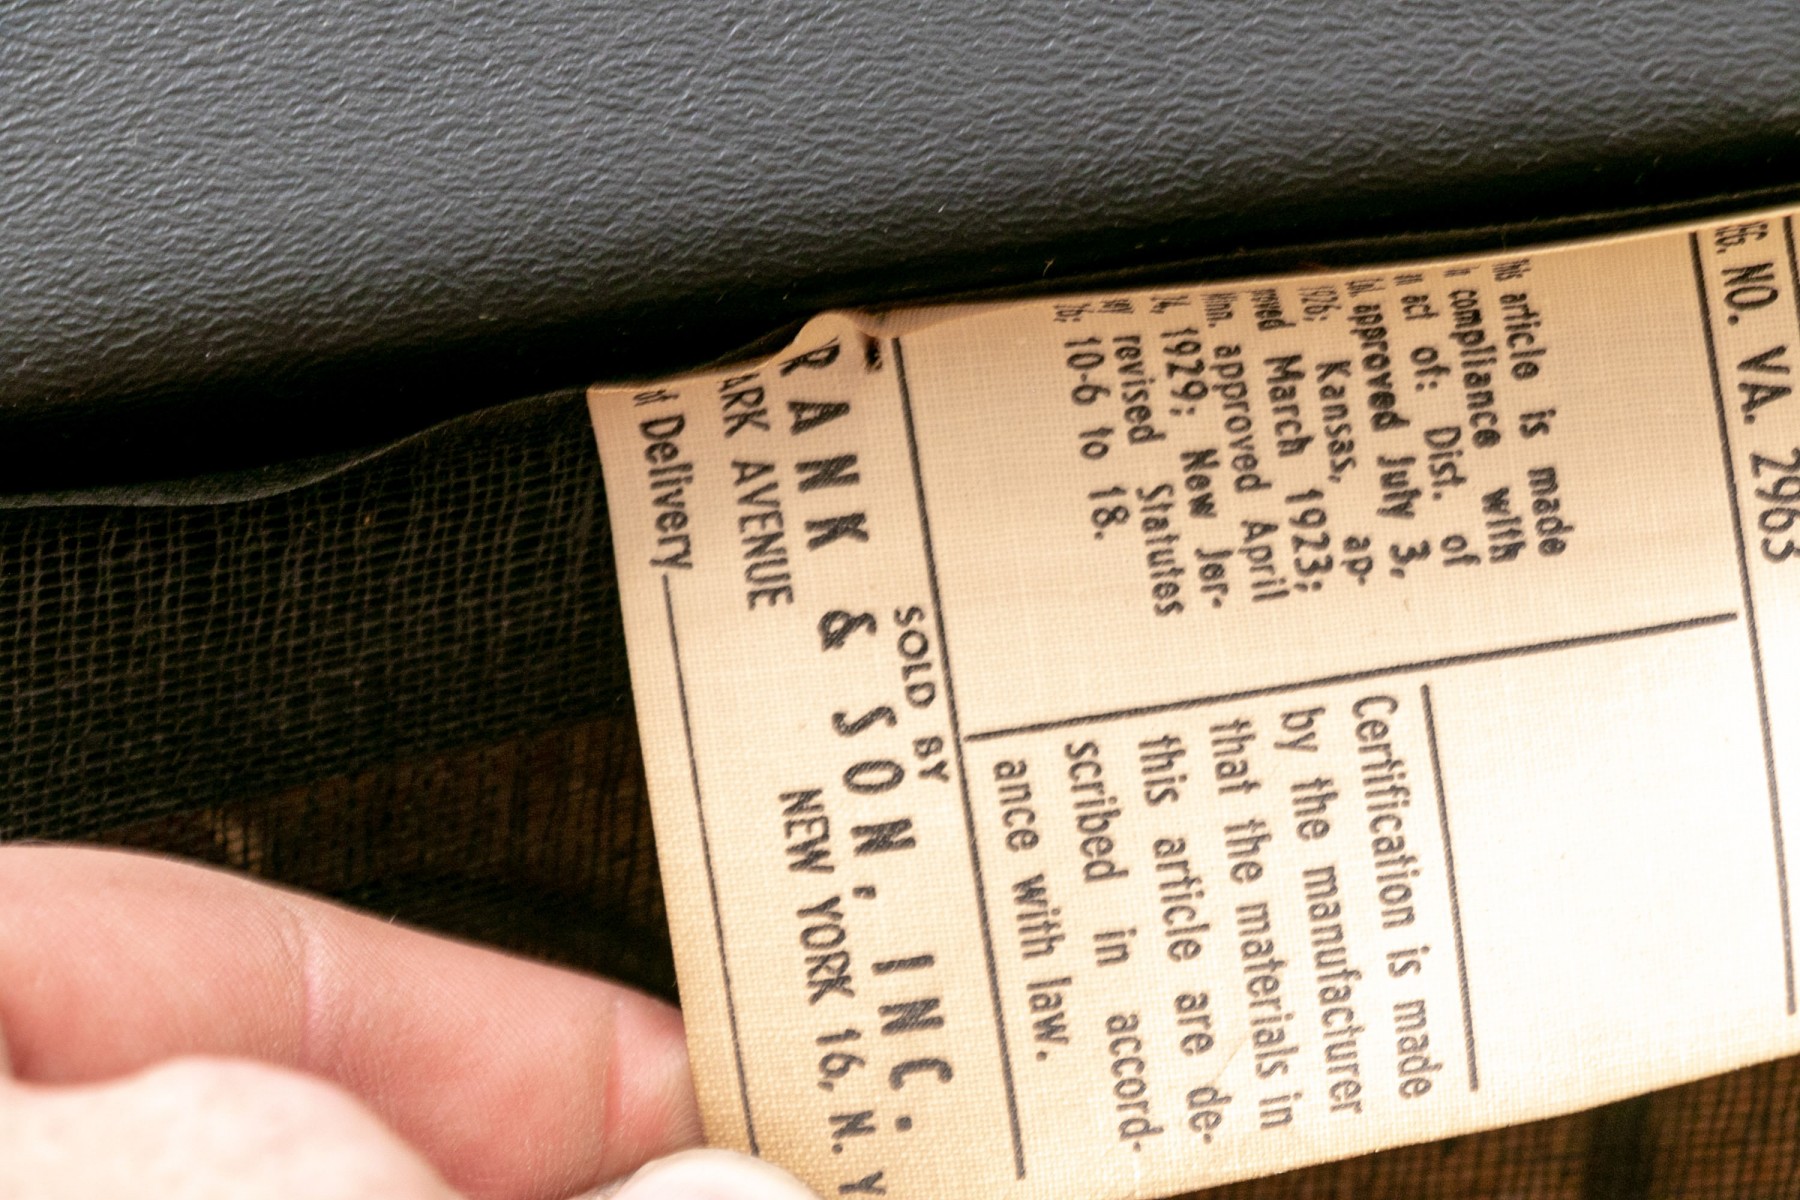 NO. VA. 2963
article is made
compliance with
act of: Dist. of
approved July 3,
1926; Kansas, ap-
March 1923;
approved April
1929; New Jer-
revised Statutes
10-6 to 18.
Certification is made
by the manufacturer
that the materials in
this article are de-
scribed in accord-
ance with law.
SOLD BY
RANK & SON, INC.
ARK AVENUE NEW YORK 16, N. Y
of Delivery